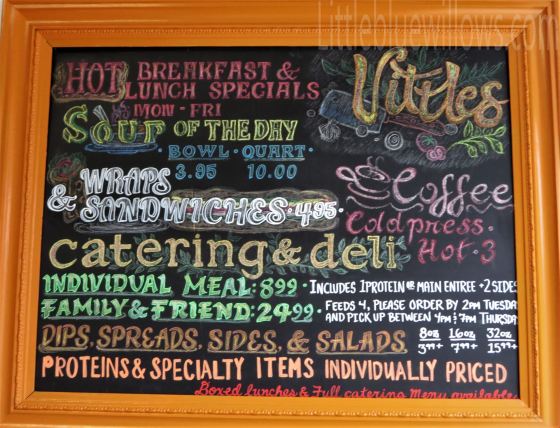 Littlebluewillows.com
HOT BREAKFAST &
LUNCH SPECIALS
MON - FRI
Vittles
SOUP OF THE DAY
· BOWL · QUART ·
3.95 10.00
& WRAPS
SANDWICHES · 4.95 ·
Coffee
Cold press ·
Hot · 3
catering & deli
INDIVIDUAL MEAL: 899 · INCLUDES 1 PROTEIN OR MAIN ENTREE + 2 SIDES
FAMILY & FRIEND: 2499 · FEEDS 4, PLEASE ORDER BY 2PM TUESDA
AND PICK UP BETWEEN 4PM & 7PM THURSDA
DIPS, SPREADS, SIDES, & SALADS
8oz 16oz 32oz
399+ 799+ 1599+
PROTEINS & SPECIALTY ITEMS INDIVIDUALLY PRICED
Boxed lunches & Full catering Menu available